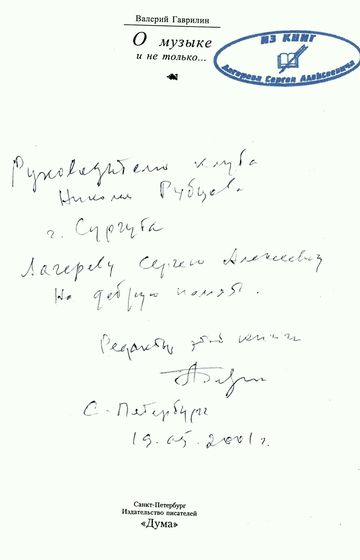 Валерий Гаврилин
О музыке
и не только...
ИЗ КНИГ
Лагерева Сергея Алексеевича
Руководителю клуба
Николая Рубцова
г. Сургута
Лагереву Сергею Алексеевичу
На добрую память.
Редактор этой книги
С.-Петербург
19.05.2001 г.
Санкт-Петербург
Издательство писателей
«Дума»